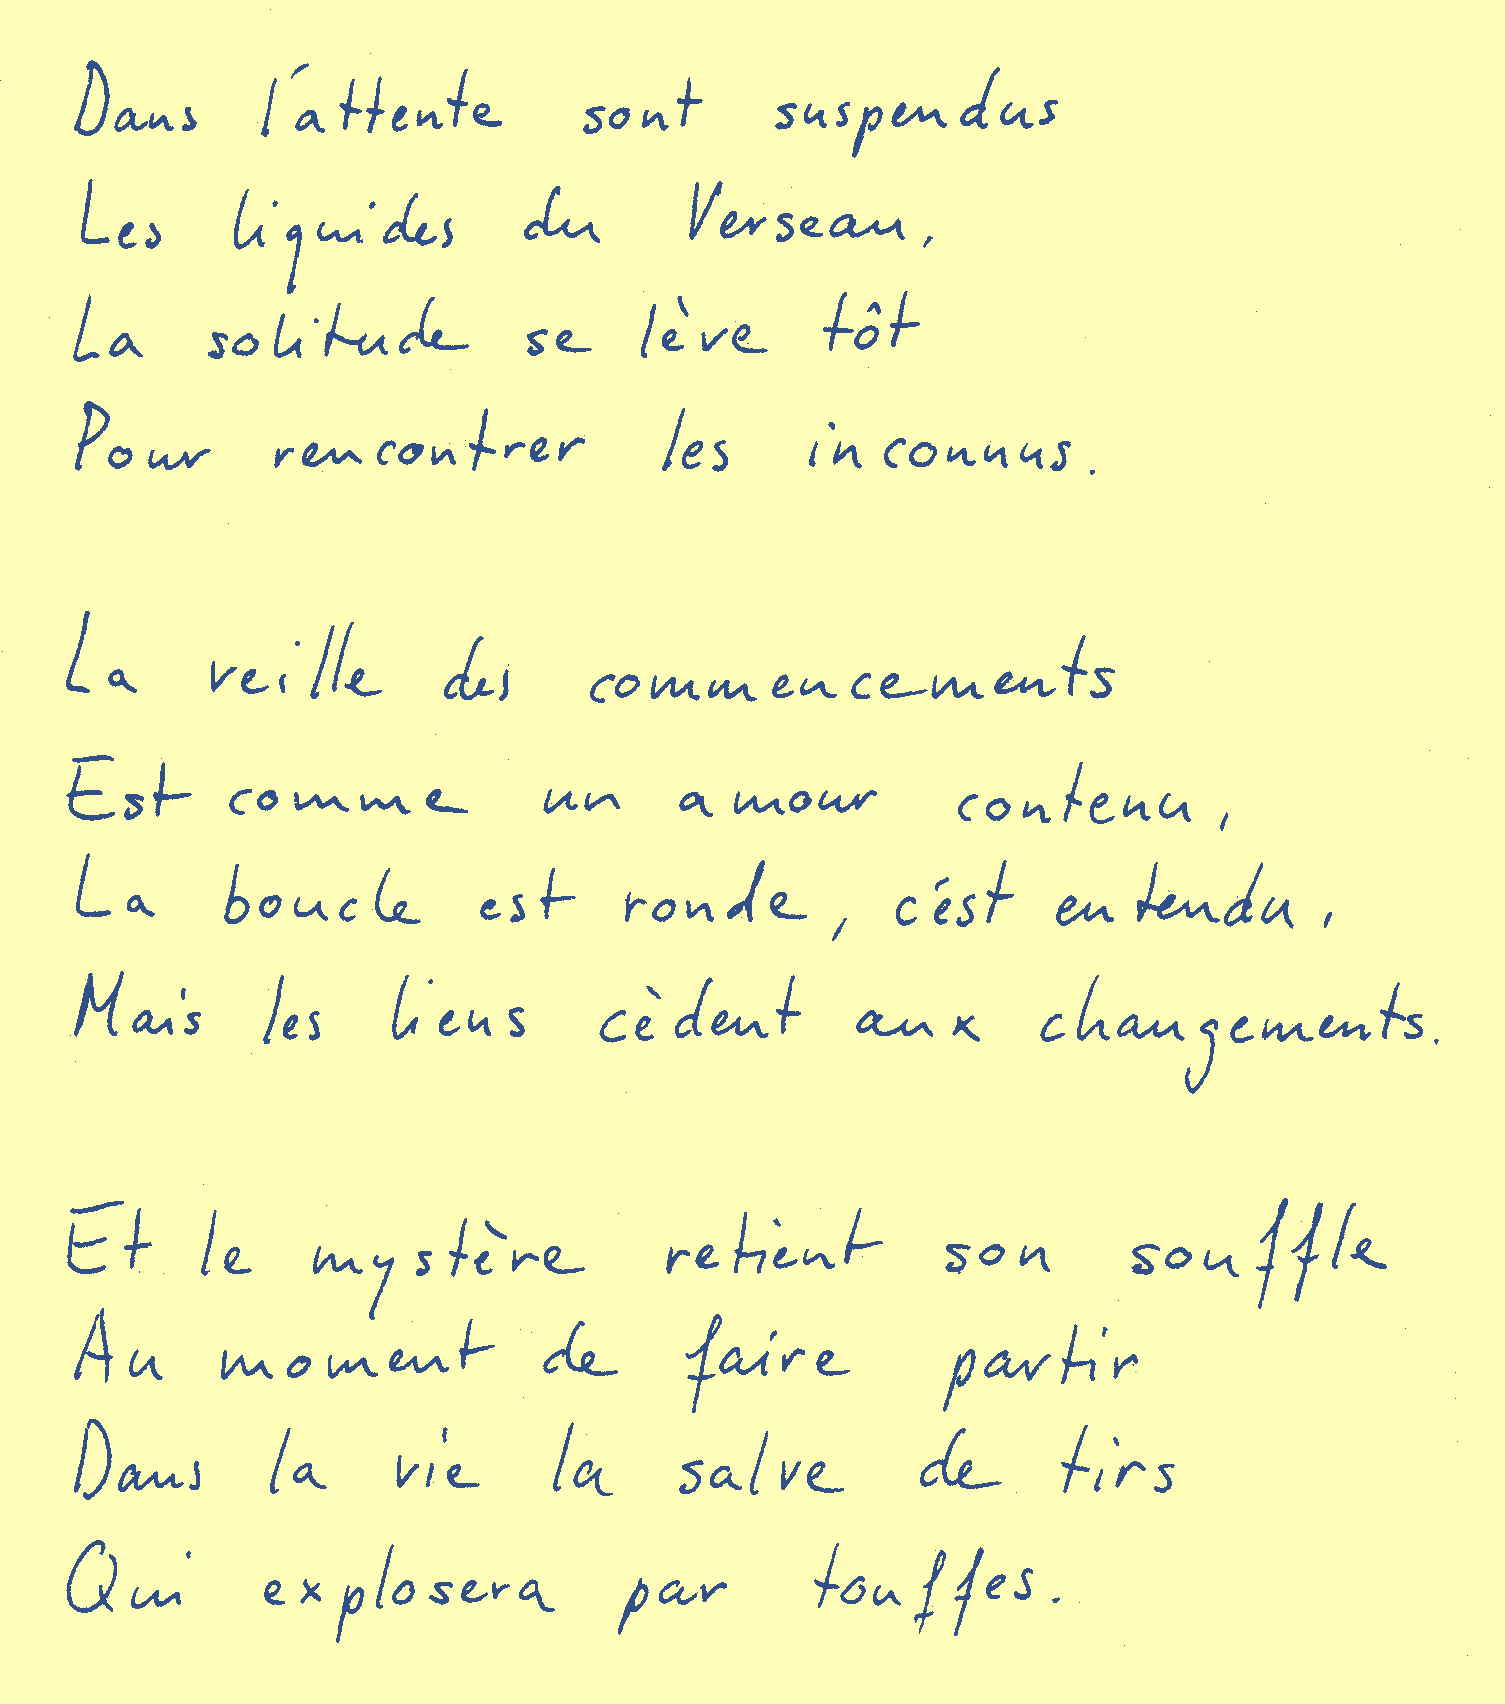 Dans l'attente sont suspendus
Les liquides du Verseau,
La solitude se lève tôt
Pour rencontrer les inconnus.
La veille des commencements
Est comme un amour contenu,
La boucle est ronde, c'est entendu,
Mais les liens cèdent aux changements.
Et le mystère retient son souffle
Au moment de faire partir
Dans la vie la salve de tirs
Qui explosera par touffes.